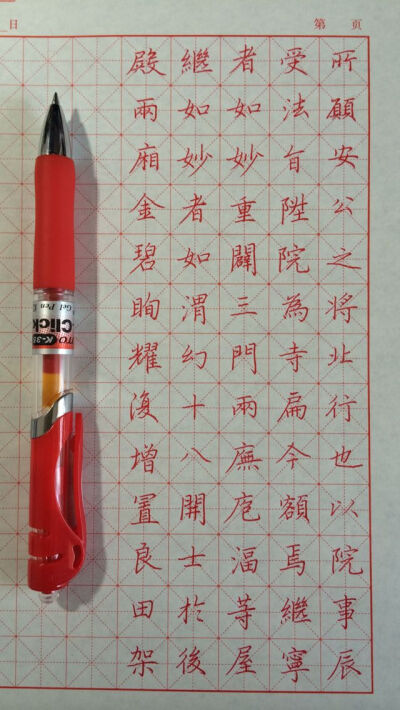 日 第 页
所願安公之將北行也以院事辰
受法旨陞院為寺扁今額焉繼寧
者如妙重闢三門兩廡庖湢等屋
繼如妙者如渭幻十八開士於後
殿兩廂金碧眴耀復增置良田架
Gel Pen
Click
K-35